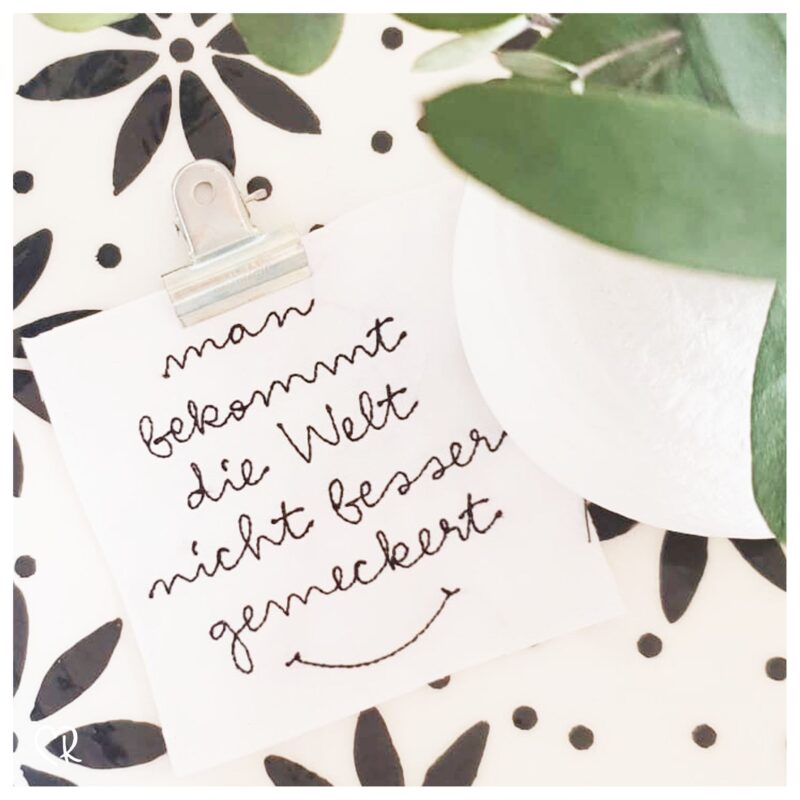 man
bekommt
die Welt
nicht besser
gemeckert
K